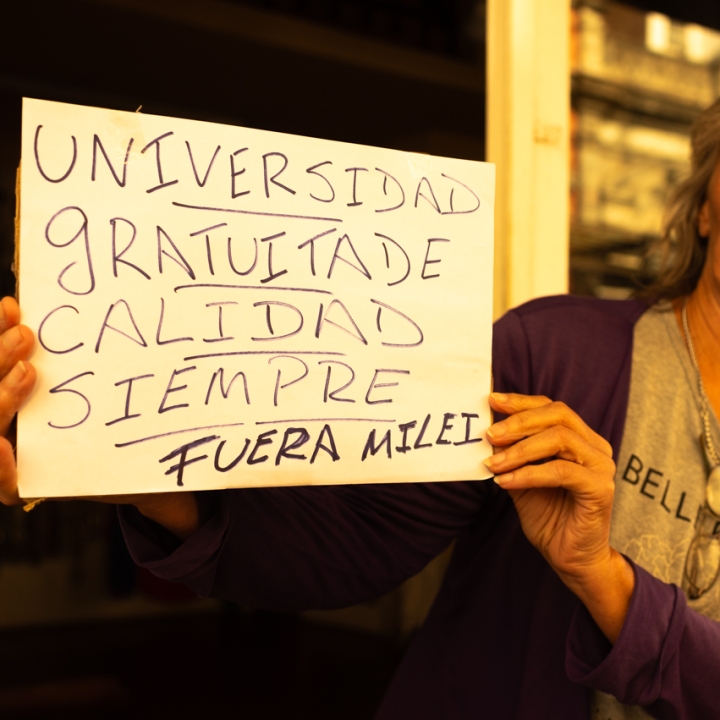 UNIVERSIDAD
gRATUITA DE
CALIDAD
SIEMPRE
FUERA MILEI
BELL